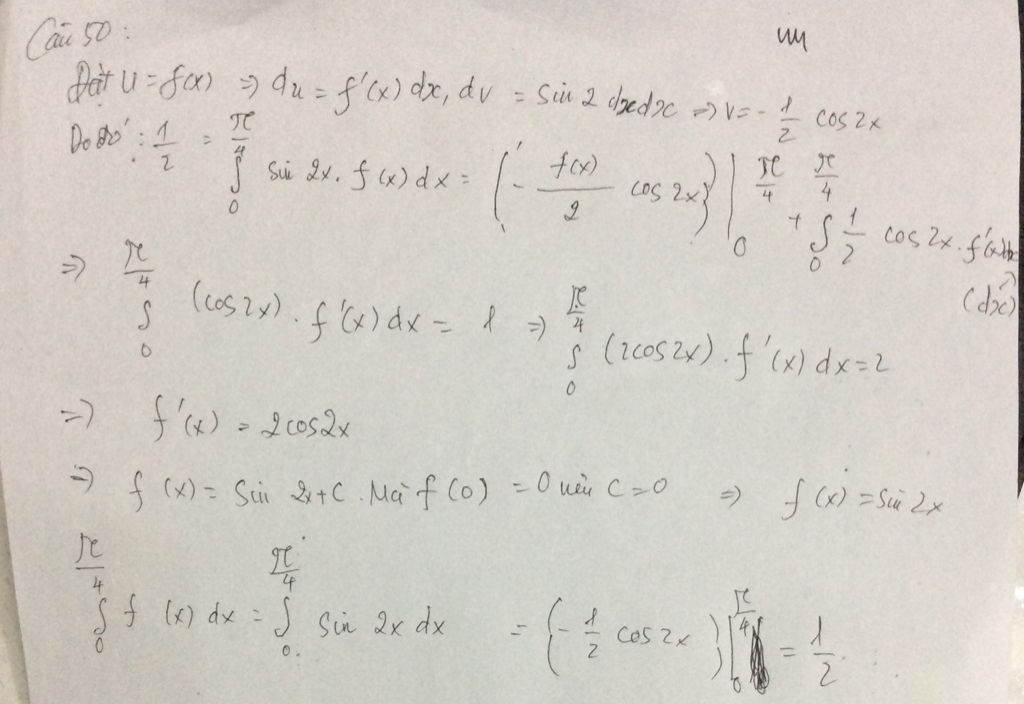 Câu 50:
Đặt u = f(x) => du = f'(x) dx, dv = sin 2 dxdx => v = - 1/2 cos 2x
Do đó: 1/2 = ∫_0^{π/4} sin 2x. f(x) dx = (- f(x)/2 cos 2x) |_0^{π/4} + ∫_0^{π/4} 1/2 cos 2x. f'(x)
(dx)
=> ∫_0^{π/4} (cos 2x). f'(x) dx = 1 => ∫_0^{π/4} (2cos 2x). f'(x) dx = 2
=> f'(x) = 2cos2x
=> f(x) = Sin 2x + C. Mà f(0) = 0 nên C = 0 => f(x) = Sin 2x
∫_0^{π/4} f(x) dx = ∫_0^{π/4} Sin 2x dx = (- 1/2 cos 2x) |_0^{π/4} = 1/2.